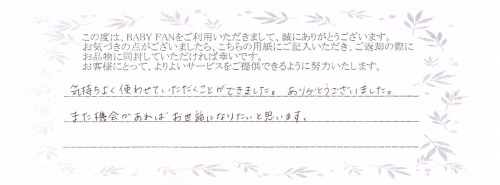 この度は、BABY FANをご利用いただきまして、誠にありがとうございます。
お気づきの点がございましたら、こちらの用紙にご記入いただき、ご返却の際に
お品物に同封していただければ幸いです。
お客様にとって、よりよいサービスをご提供できるように努力いたします。
気持ちよく使わせていただくことができました。ありがとうございました。
また機会があればお世話になりたいと思います。